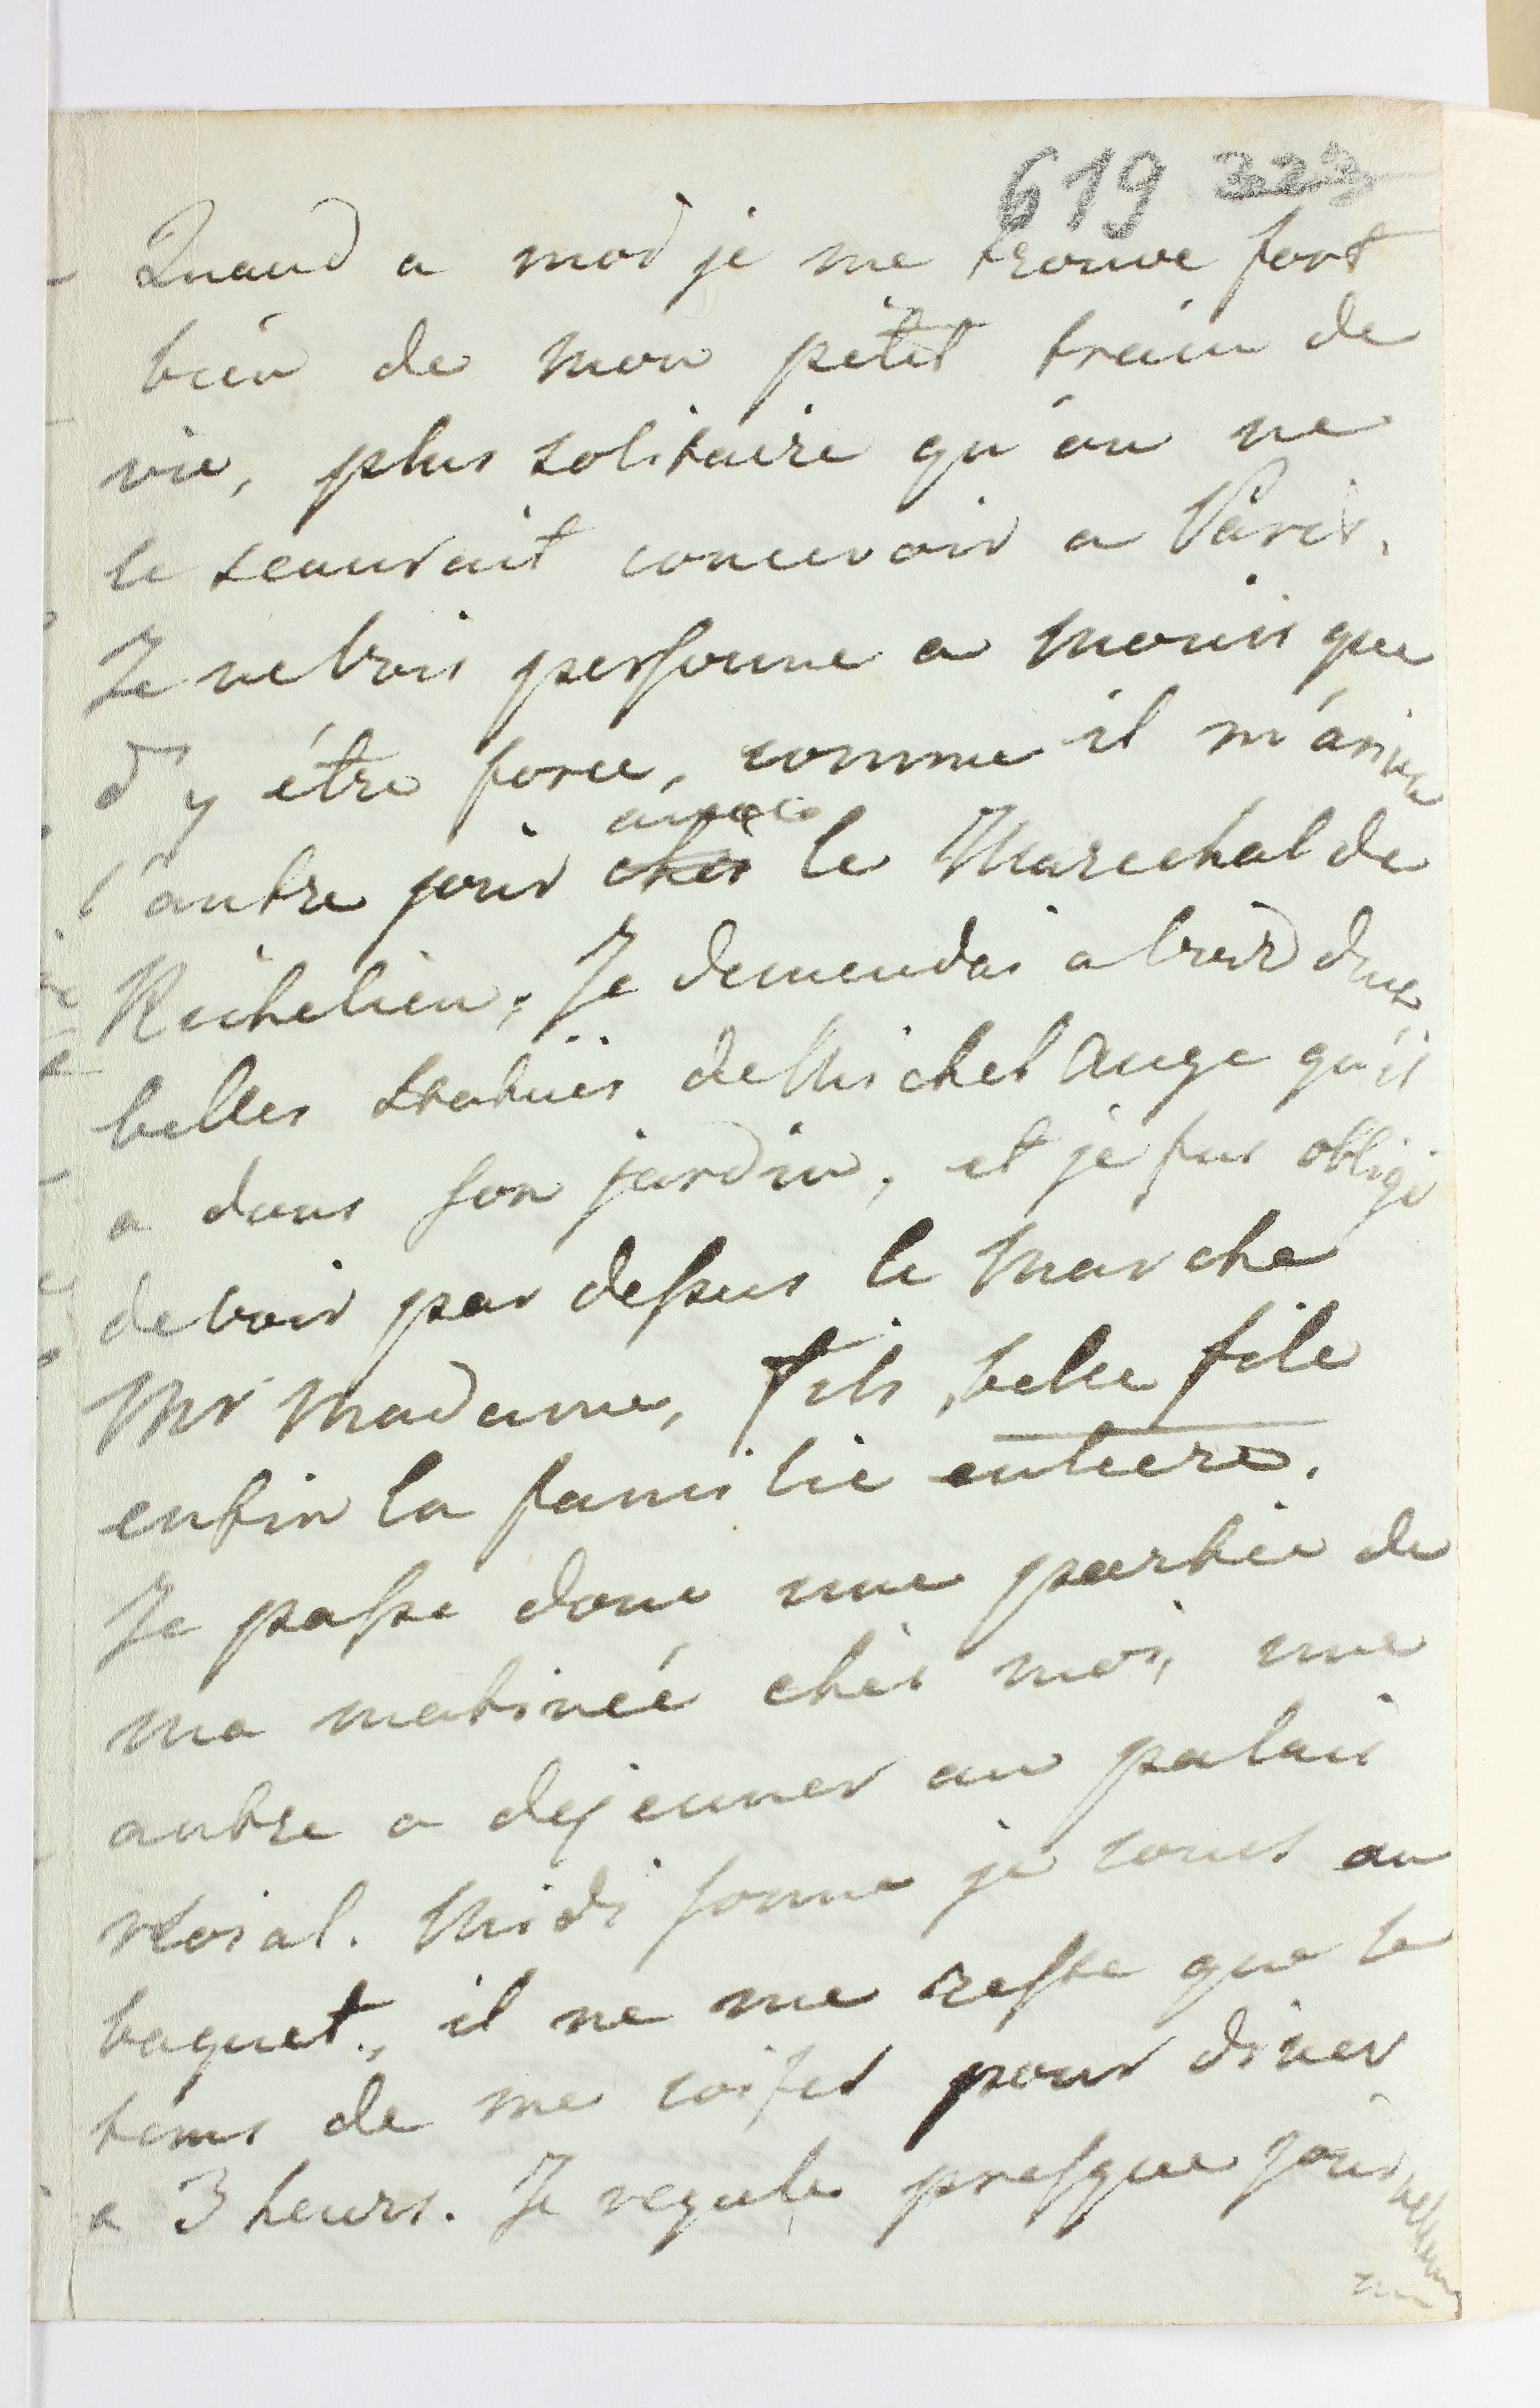 619 323
Quand a moi je me trouve fort
bien de mon petit train de
vie, plus solitaire qu'on ne
le scauroit concevoir a Paris.
Je ne vois personne a moins que
d'y étre force, comme il m'arriva
l'autre jour ches avec le Marechal de
Richelieu, Je demendai a voir deux
belles statuës de Michel Ange qu'il
a dans son jardin, et je fus obligé
de voir par dessus le marche
Mr Madame, fils, belle file
enfin la familie entiere.
Je passe donc une partie de
ma matineé chés moi, une
autre a dejeuner au palais
roial. Midi sonne je cours au
baquet., il ne me reste que le
tems de me coifer pour diner
a 3 heurs. Je regule presque journellem